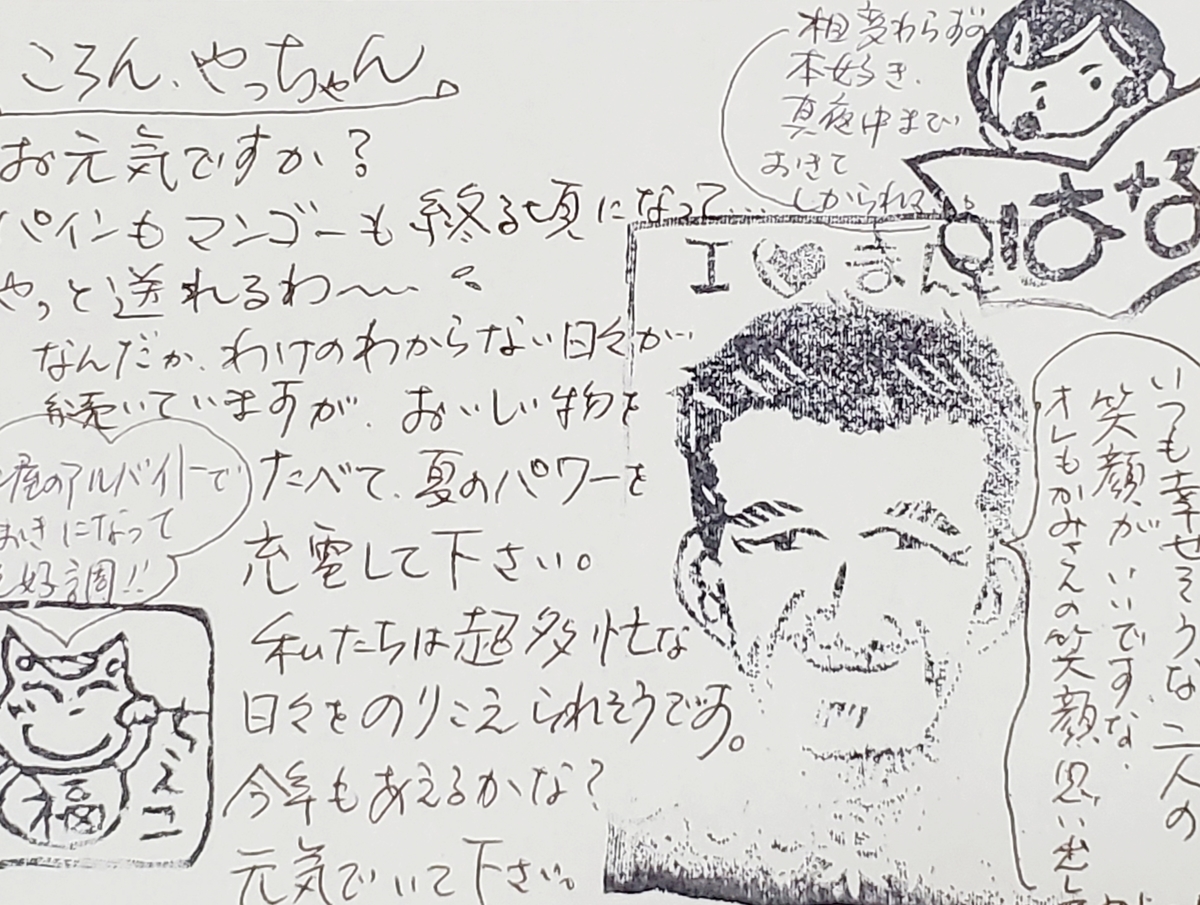 ころん、やっちゃん。
お元気ですか?
パインもマンゴーも終る頃になって…
やっと送れるわ〜
なんだか、わけのわからない日々が
続いていますが、おいしい物を
たべて、夏のパワーを
充電して下さい。
私たちは超多忙な
日々をのりこえられそうです。
今年もあえるかな?
元気でいて下さい。
相変わらずの
本好き、
真夜中まで
おきて
しかられて
はな
I ♥ まん
いつも幸せそうな二人の
笑顔がいいですな、
オレもかみさんの笑顔思い出し
屋のアルバイトで
おきになって
好調!!
ちえこ
福